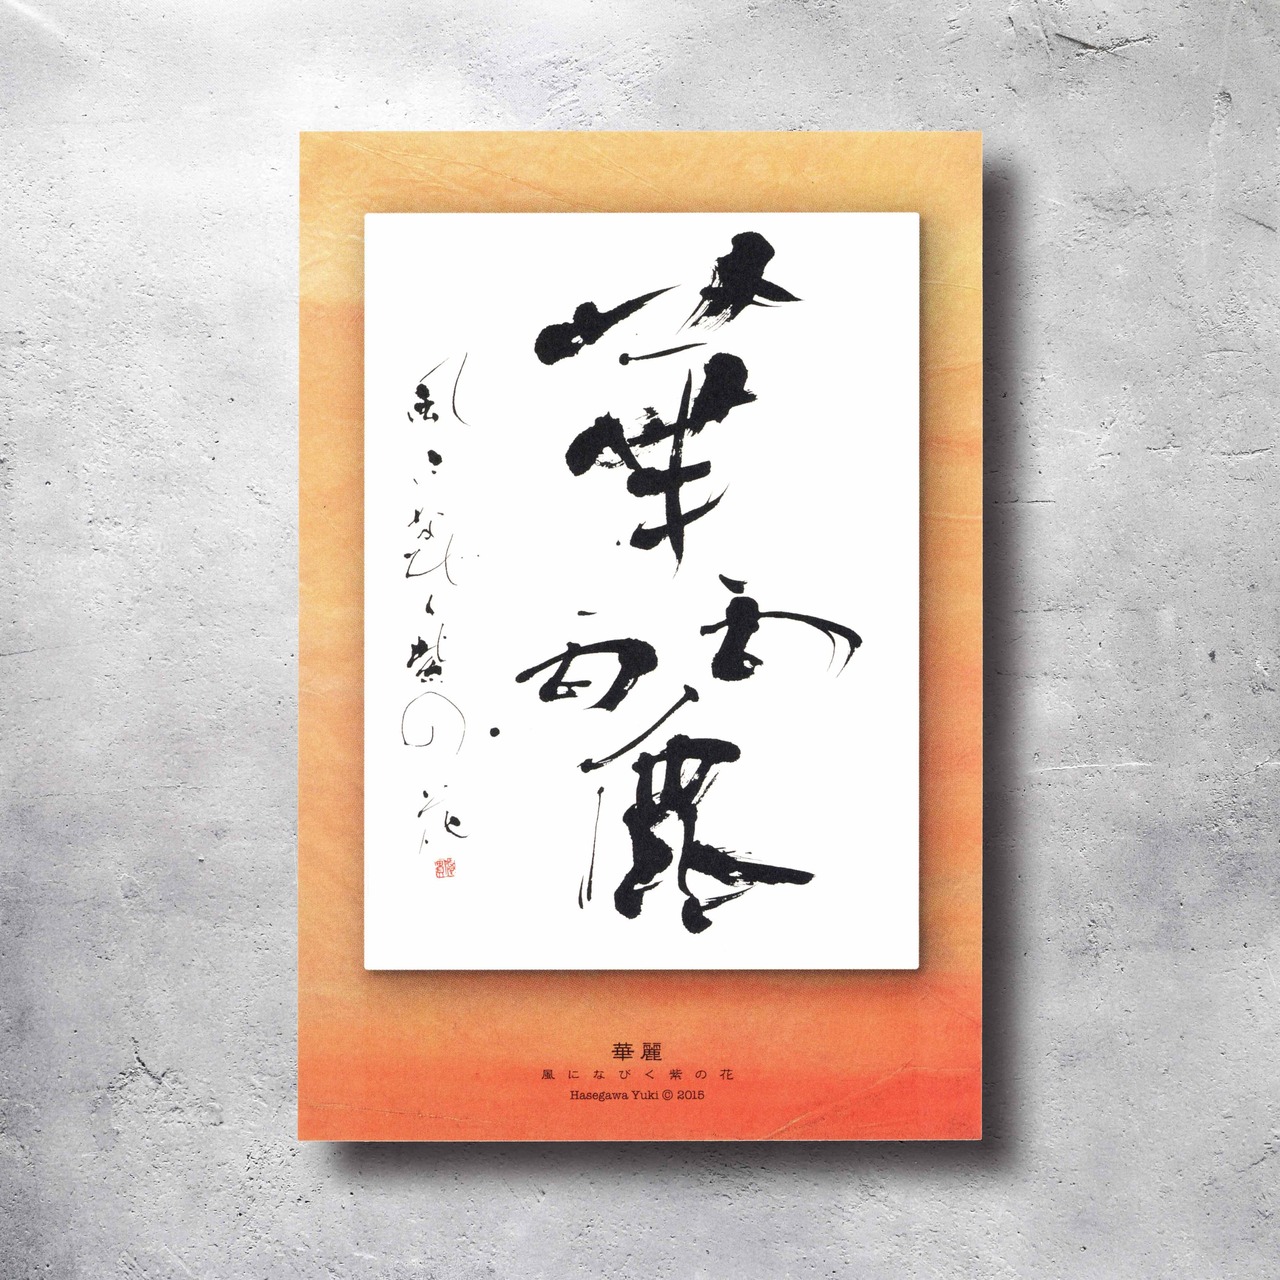 華麗
風になびく紫の花
華麗
風になびく紫の花
Hasegawa Yuki © 2015